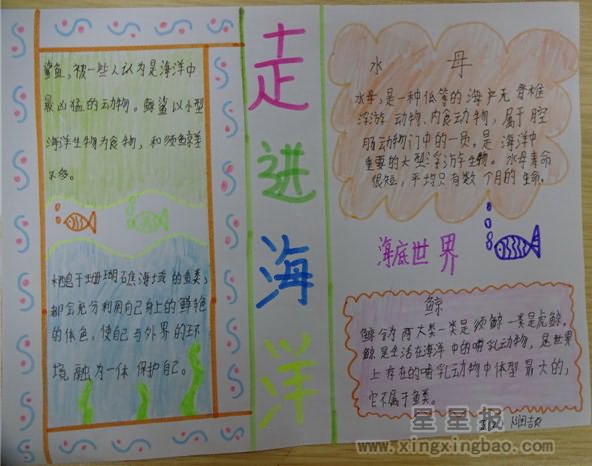 鲨鱼,被一些人认为是海洋中
最凶猛的动物。鲸鲨以小型
海洋生物为食物,和须鲸差
不多。
栖息于珊瑚礁海域的鱼类,
都会充分利用自己身上的鲜艳
的体色,使自己与外界的环
境融为一体 保护自己。
走进海洋
水母
水母,是一种低等的海产无脊椎
浮游动物,肉食动物,属于腔
肠动物门中的一员。是海洋中
重要的大型浮游生物。水母寿命
很短,平均只有数个月的生命。
海底世界
鲸
鲸分为两大类一类是须鲸一类是虎鲸。
鲸是生活在海洋中的哺乳动物,是世界
上存在的哺乳动物中体型最大的,
它不属于鱼类。
星星报
www.xingxingbao.com